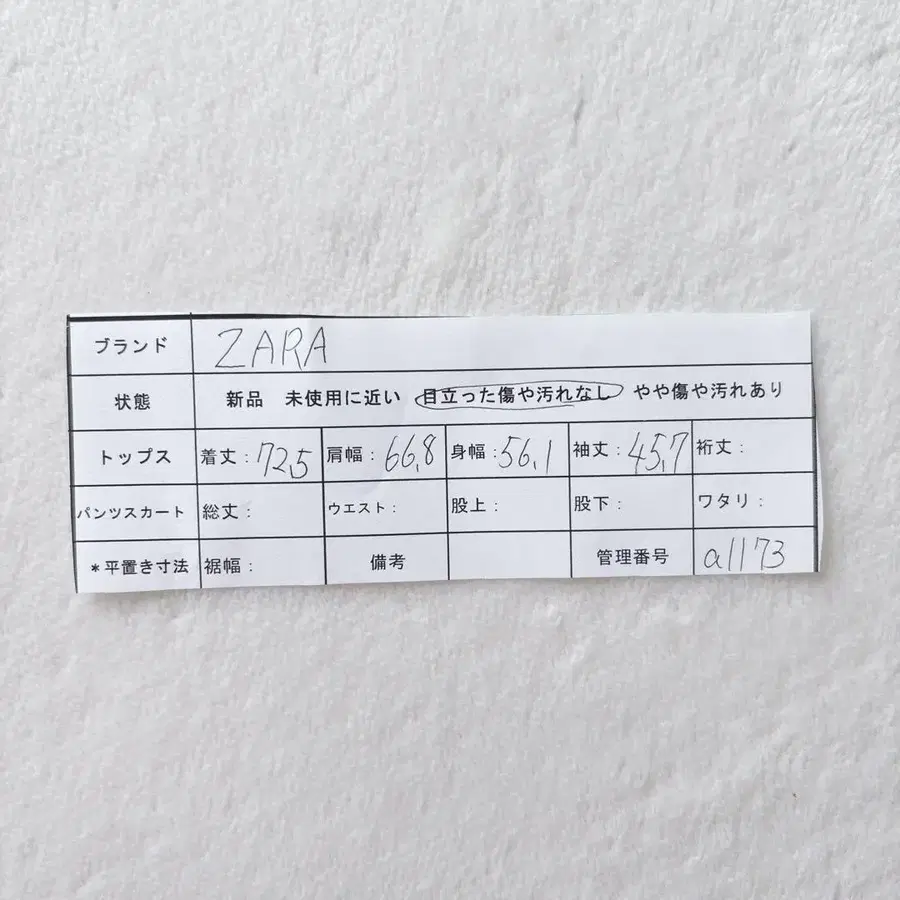 ブランド ZARA
状態 新品 未使用に近い 目立った傷や汚れなし やや傷や汚れあり
トップス 着丈:72,5 肩幅:66,8 身幅:56,1 袖丈:45,7 裄丈:
パンツスカート 総丈: ウエスト: 股上: 股下: ワタリ:
*平置き寸法 裾幅: 備考 管理番号 a1173